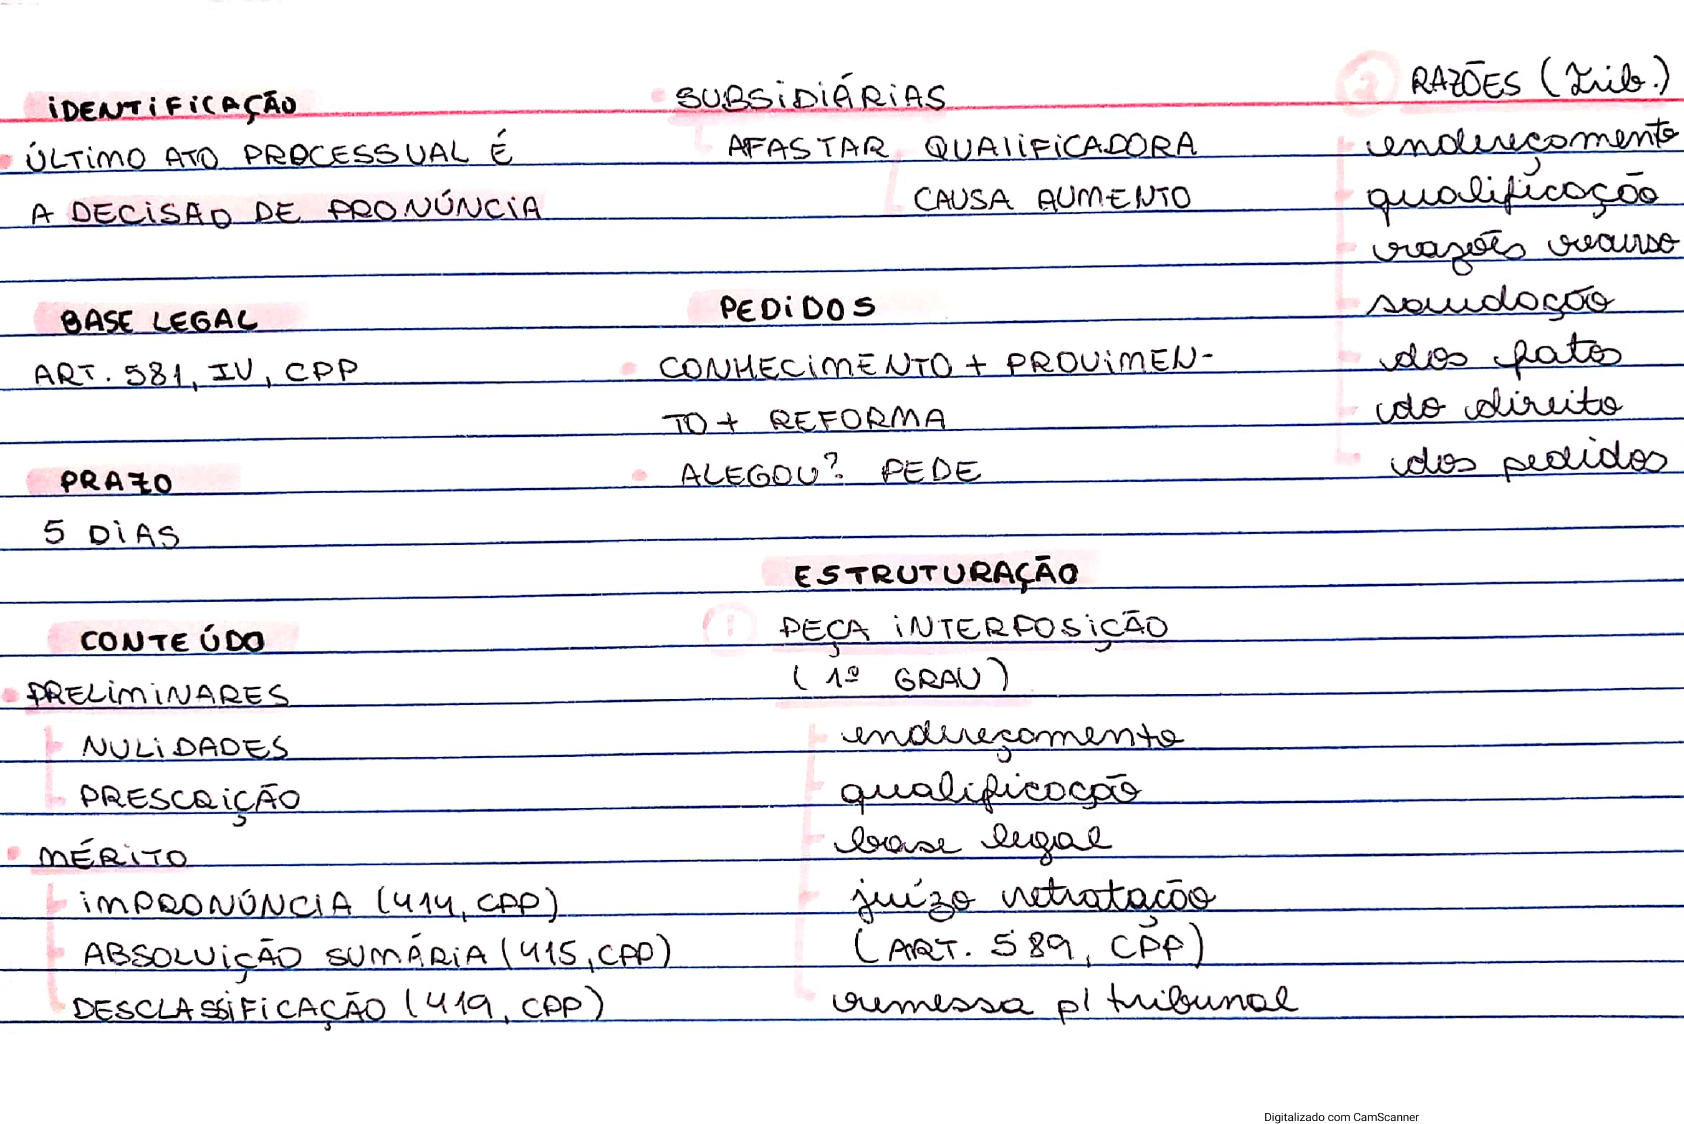 IDENTIFICAÇÃO
ÚLTIMO ATO PROCESSUAL É
A DECISÃO DE PRONÚNCIA
BASE LEGAL
ART. 581, IV, CPP
PRAZO
5 DIAS
CONTEÚDO
PRELIMINARES
NULIDADES
PRESCRIÇÃO
MÉRITO
IMPRONÚNCIA (414, CPP)
ABSOLVIÇÃO SUMÁRIA (415, CPP)
DESCLASSIFICAÇÃO (419, CPP)
SUBSIDIÁRIAS
AFASTAR QUALIFICADORA
CAUSA AUMENTO
PEDIDOS
CONHECIMENTO + PROVIMEN-
TO + REFORMA
ALEGOU? PEDE
ESTRUTURAÇÃO
1 PEÇA INTERPOSIÇÃO
(1º GRAU)
endereçamento
qualificação
base legal
juízo retratação
(ART. 589, CPP)
remessa p/ tribunal
2 RAZÕES (Trib.)
endereçamento
qualificação
razões recurso
saudação
dos fatos
do direito
dos pedidos
Digitalizado com CamScanner